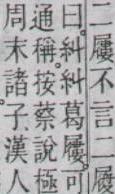 二屨不言二屨
曰糾糾葛屨可
通稱按蔡說極
周末諸子漢人